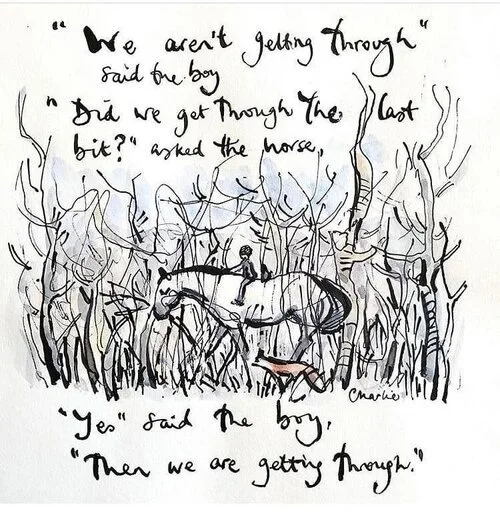 "We aren't getting through"
said the boy
"Did we get through the last
bit?" asked the horse,
Charlie
"Yes" said the boy,
"Then we are getting through."